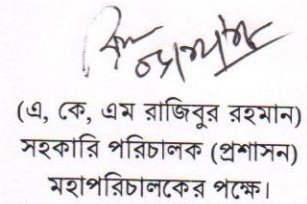 (এ, কে, এম রাজিবুর রহমান)
সহকারি পরিচালক (প্রশাসন)
মহাপরিচালকের পক্ষে।